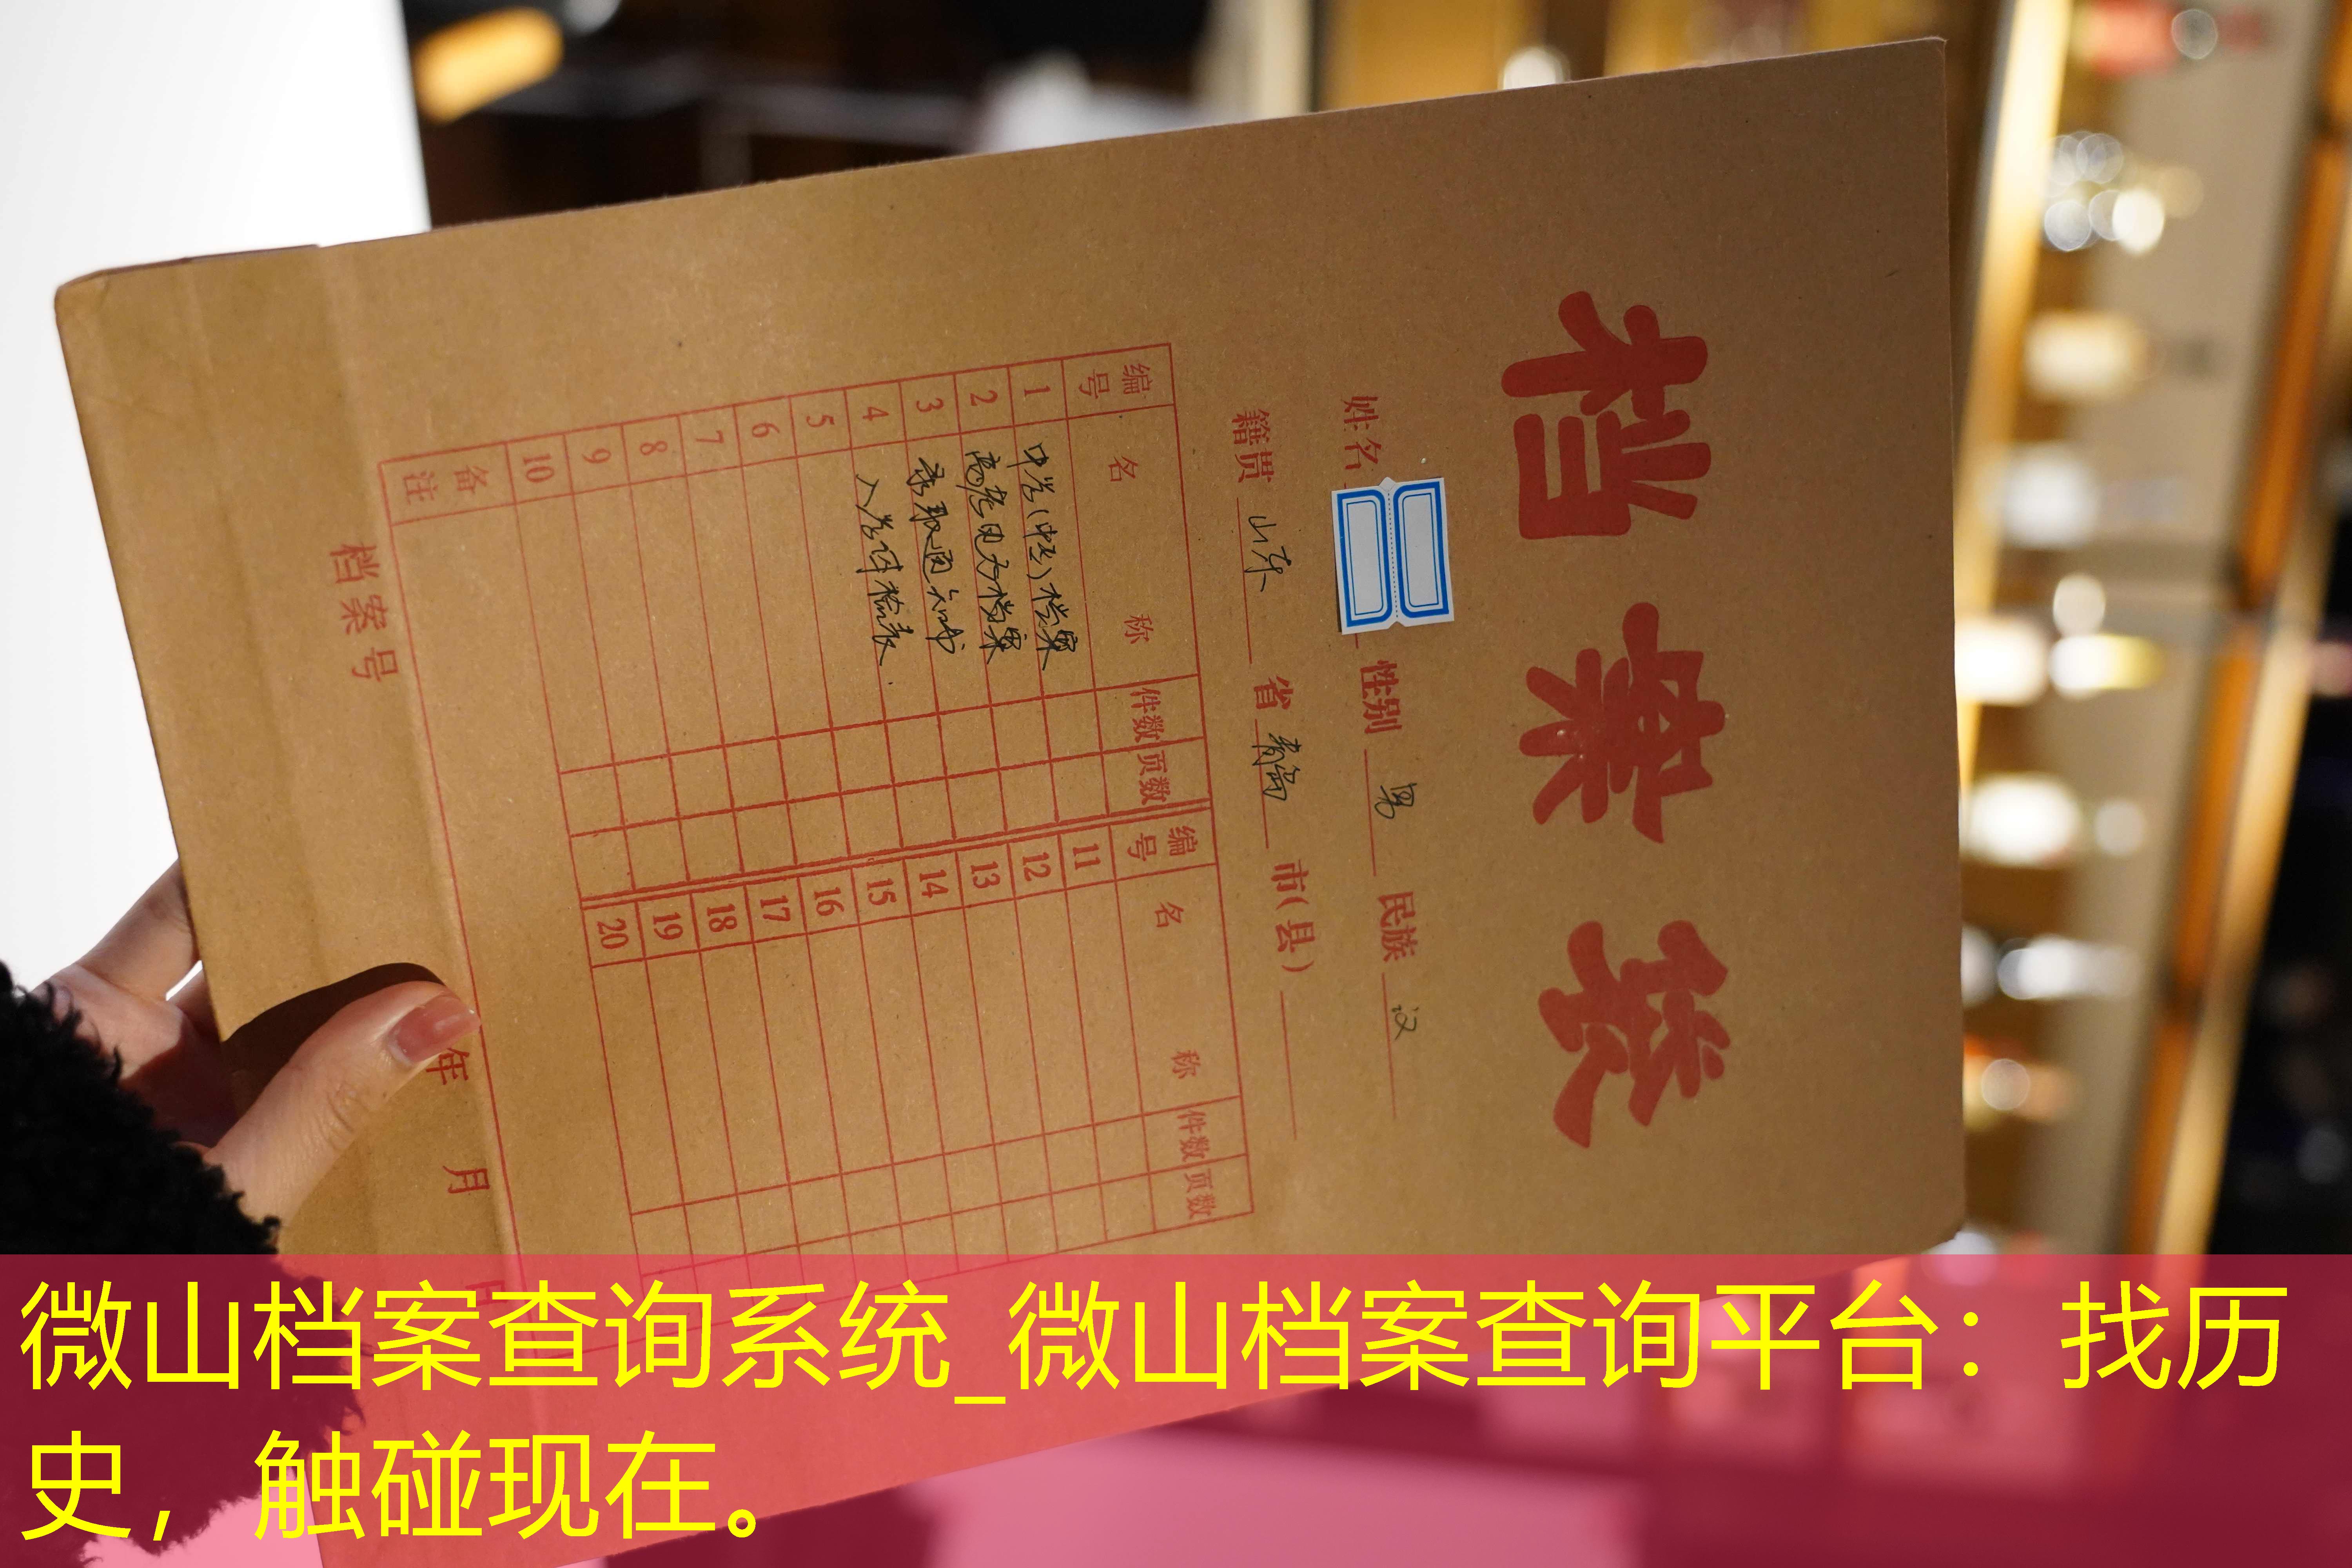 档案袋
姓名 性别 男 民族 汉
籍贯 山东 省 青岛 市(县)
编号 名称 件数 页数 编号 名称 件数 页数
1 中学(中专)档案 11
2 高考电子档案 12
3 录取通知书 13
4 入学体检表 14
5 15
6 16
7 17
8 18
9 19
10 20
备注
档案号 年 月 日
微山档案查询系统_微山档案查询平台：找历
史，触碰现在。